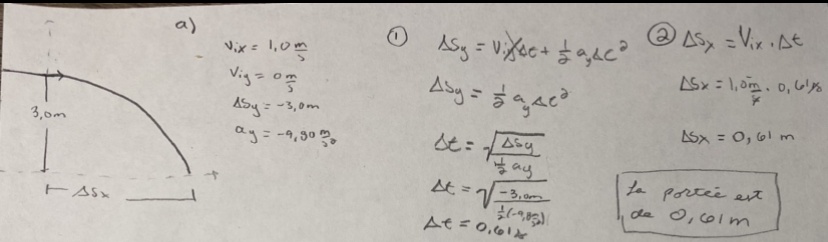 a)
3,0m
ΔSx
Vix = 1,0 m/s
Viy = 0 m/s
ΔSy = -3,0m
ay = -9,80 m/s²
①
ΔSy = ViyΔt + 1/2 ayΔt²
ΔSy = 1/2 ayΔt²
Δt = √(ΔSy / 1/2 ay)
Δt = √(-3,0m / 1/2(-9,8m/s²))
Δt = 0,61s
②
ΔSx = Vix · Δt
ΔSx = 1,0m/s · 0,61s
ΔSx = 0,61 m
La portée est
de 0,61m